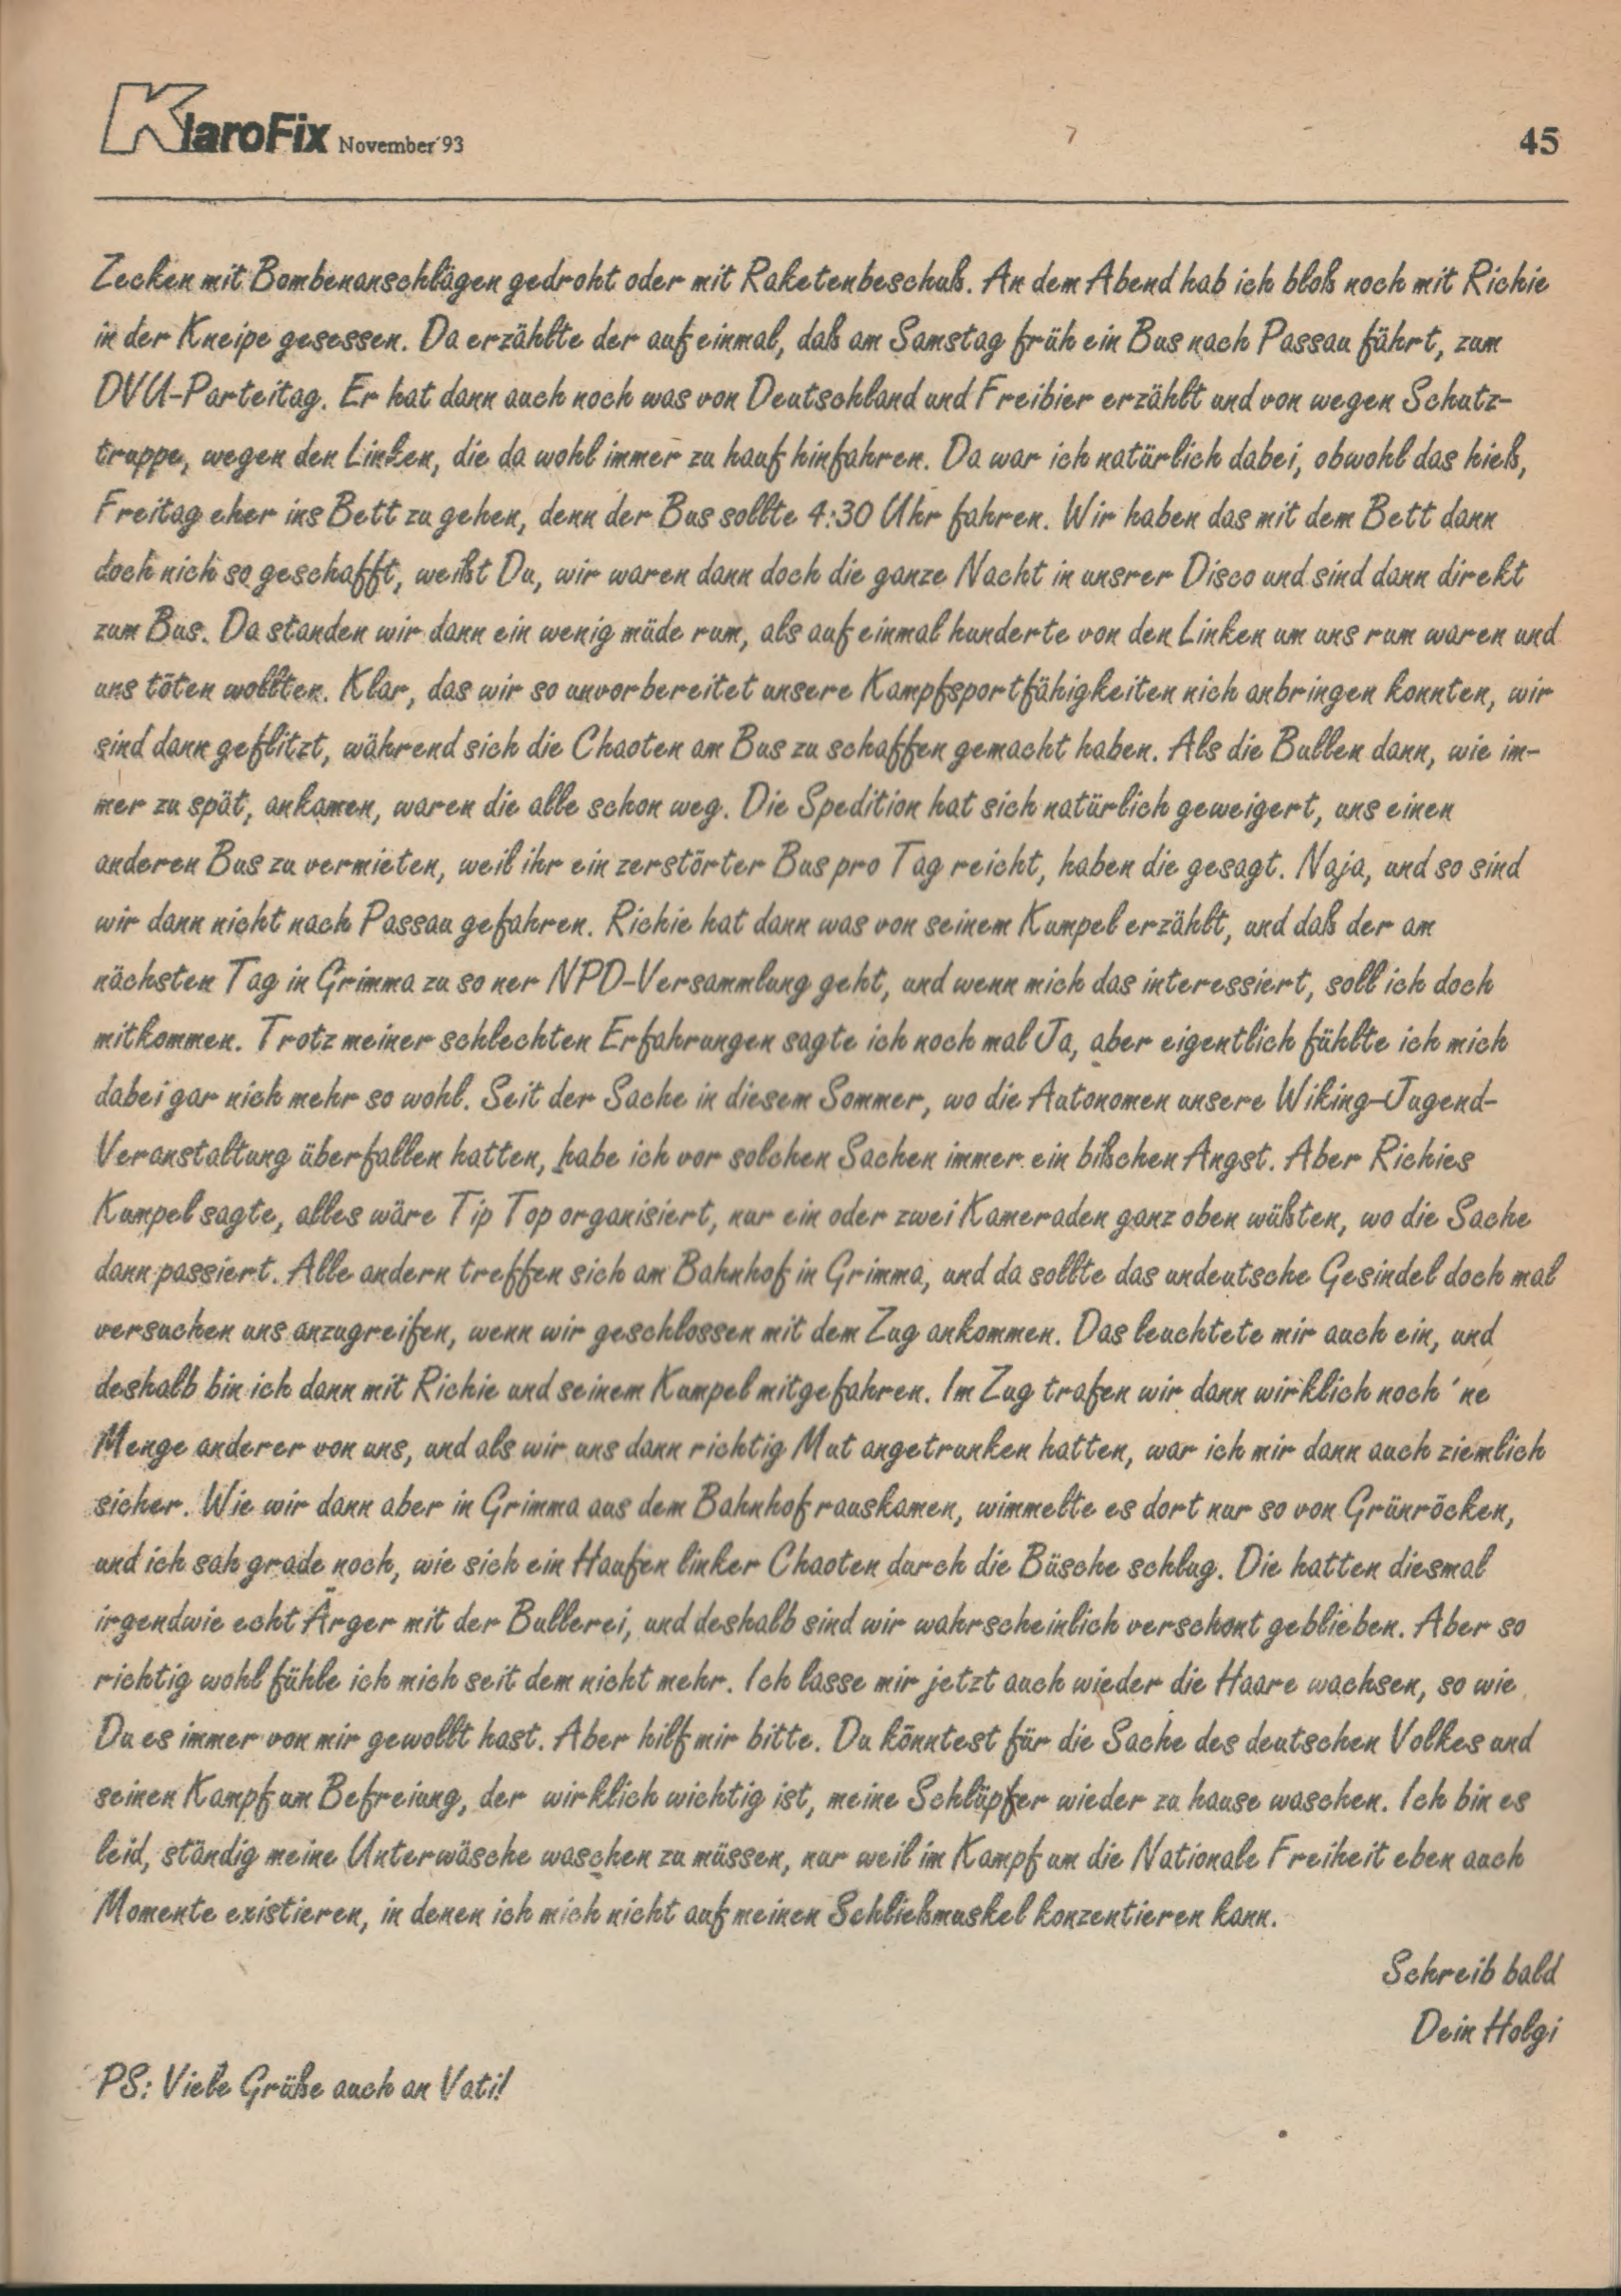 KlaroFix November´93
45
Zecken mit Bombenanschlägen gedroht oder mit Raketenbeschuß. An dem Abend hab ich bloß noch mit Richie
in der Kneipe gesessen. Da erzählte der auf einmal, daß am Samstag früh ein Bus nach Passau fährt, zum
DVU-Parteitag. Er hat dann auch noch was von Deutschland und Freibier erzählt und von wegen Schutz-
truppe, wegen den Linken, die da wohl immer zu hauf hinfahren. Da war ich natürlich dabei, obwohl das hieß,
Freitag eher ins Bett zu gehen, denn der Bus sollte 4:30 Uhr fahren. Wir haben das mit dem Bett dann
doch nich so geschafft, weißt Du, wir waren dann doch die ganze Nacht in unsrer Disco und sind dann direkt
zum Bus. Da standen wir dann ein wenig müde rum, als auf einmal hunderte von den Linken um uns rum waren und
uns töten wollten. Klar, das wir so unvorbereitet unsere Kampfsportfähigkeiten nich anbringen konnten, wir
sind dann geflitzt, während sich die Chaoten am Bus zu schaffen gemacht haben. Als die Bullen dann, wie im-
mer zu spät, ankamen, waren die alle schon weg. Die Spedition hat sich natürlich geweigert, uns einen
anderen Bus zu vermieten, weil ihr ein zerstörter Bus pro Tag reicht, haben die gesagt. Naja, und so sind
wir dann nicht nach Passau gefahren. Richie hat dann was von seinem Kumpel erzählt, und daß der am
nächsten Tag in Grimma zu so ner NPD-Versammlung geht, und wenn mich das interessiert, soll ich doch
mitkommen. Trotz meiner schlechten Erfahrungen sagte ich noch mal Ja, aber eigentlich fühlte ich mich
dabei gar nich mehr so wohl. Seit der Sache in diesem Sommer, wo die Autonomen unsere Wiking-Jugend-
Veranstaltung überfallen hatten, habe ich vor solchen Sachen immer ein bißchen Angst. Aber Richies
Kumpel sagte, alles wäre Tip Top organisiert, nur ein oder zwei Kameraden ganz oben wüßten, wo die Sache
dann passiert. Alle andern treffen sich am Bahnhof in Grimma, und da sollte das undeutsche Gesindel doch mal
versuchen uns anzugreifen, wenn wir geschlossen mit dem Zug ankommen. Das leuchtete mir auch ein, und
deshalb bin ich dann mit Richie und seinem Kumpel mitgefahren. Im Zug trafen wir dann wirklich noch ´ne
Menge anderer von uns, und als wir uns dann richtig Mut angetrunken hatten, war ich mir dann auch ziemlich
sicher. Wie wir dann aber in Grimma aus dem Bahnhof rauskamen, wimmelte es dort nur so von Grünröcken,
und ich sah grade noch, wie sich ein Haufen linker Chaoten durch die Büsche schlug. Die hatten diesmal
irgendwie echt Ärger mit der Bullerei, und deshalb sind wir wahrscheinlich verschont geblieben. Aber so
richtig wohl fühle ich mich seit dem nicht mehr. Ich lasse mir jetzt auch wieder die Haare wachsen, so wie
Du es immer von mir gewollt hast. Aber hilf mir bitte. Du könntest für die Sache des deutschen Volkes und
seinen Kampf um Befreiung, der wirklich wichtig ist, meine Schlüpfer wieder zu hause waschen. Ich bin es
leid, ständig meine Unterwäsche waschen zu müssen, nur weil im Kampf um die Nationale Freiheit eben auch
Momente existieren, in denen ich mich nicht auf meinen Schließmuskel konzentieren kann.
Schreib bald
Dein Holgi
PS: Viele Grüße auch an Vati!